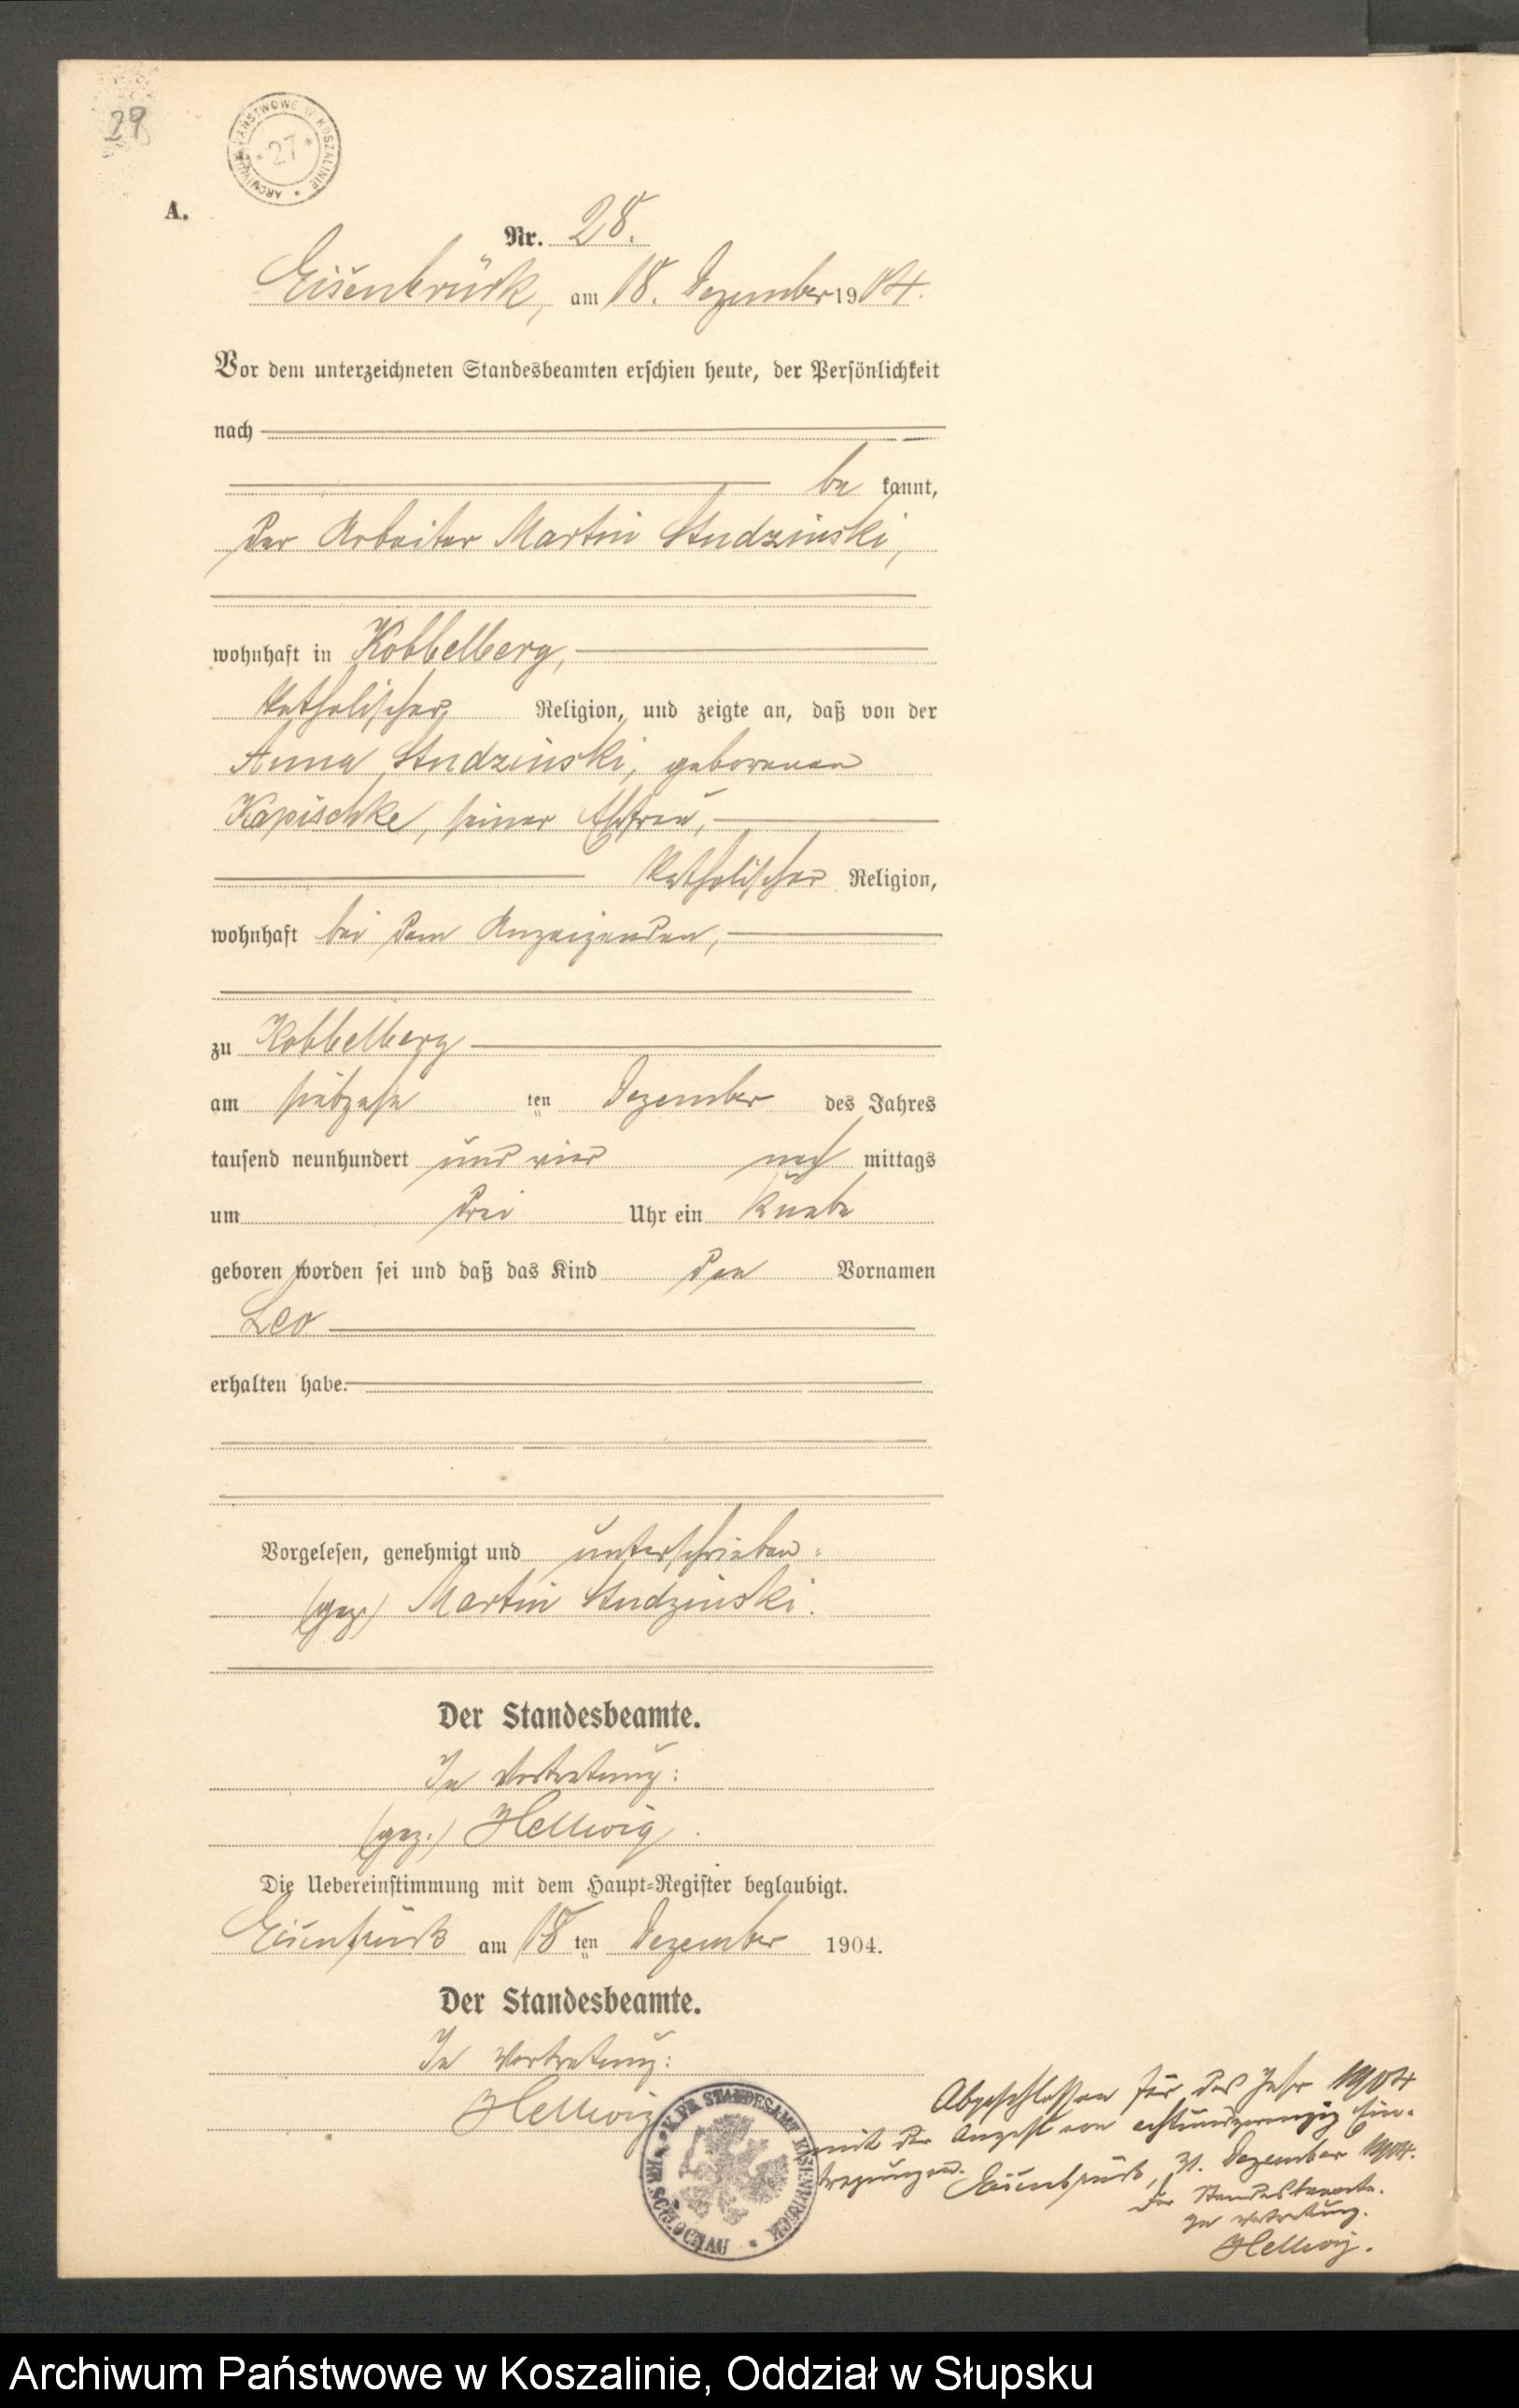 29
ARCHIWUM PAŃSTWOWE W KOSZALINIE
* 27 *
A.
Nr. 28.
Eisenbrück, am 18. Dezember 1904.
Vor dem unterzeichneten Standesbeamten erschien heute, der Persönlichkeit
nach
be kannt,
der Arbeiter Martin Studzinski,
wohnhaft in Kobbelberg,
katholischer Religion, und zeigte an, daß von der
Anna Studzinski, geborenen
Kapischke, seiner Ehefrau,
katholischer Religion,
wohnhaft bei dem Anzeigenden,
zu Kobbelberg
am siebzehn ten Dezember des Jahres
tausend neunhundert und vier nach mittags
um drei Uhr ein Knabe
geboren worden sei und daß das Kind den Vornamen
Leo
erhalten habe.
Vorgelesen, genehmigt und unterschrieben:
(gez) Martin Studzinski.
Der Standesbeamte.
In Vertretung:
(gez.) Hellwig.
Die Uebereinstimmung mit dem Haupt-Register beglaubigt.
Eisenbrück am 18 ten Dezember 1904.
Der Standesbeamte.
In Vertretung:
Hellwig
K. PR. STANDESAMT EISENBRÜCK * KR. SCHLOCHAU *
Abgeschlossen für das Jahr 1904
mit der Anzahl von achtundzwanzig Ein-
tragungen. Eisenbrück, 31. Dezember 1904.
Der Standesbeamte.
In Vertretung.
Hellwig.
Archiwum Państwowe w Koszalinie, Oddział w Słupsku